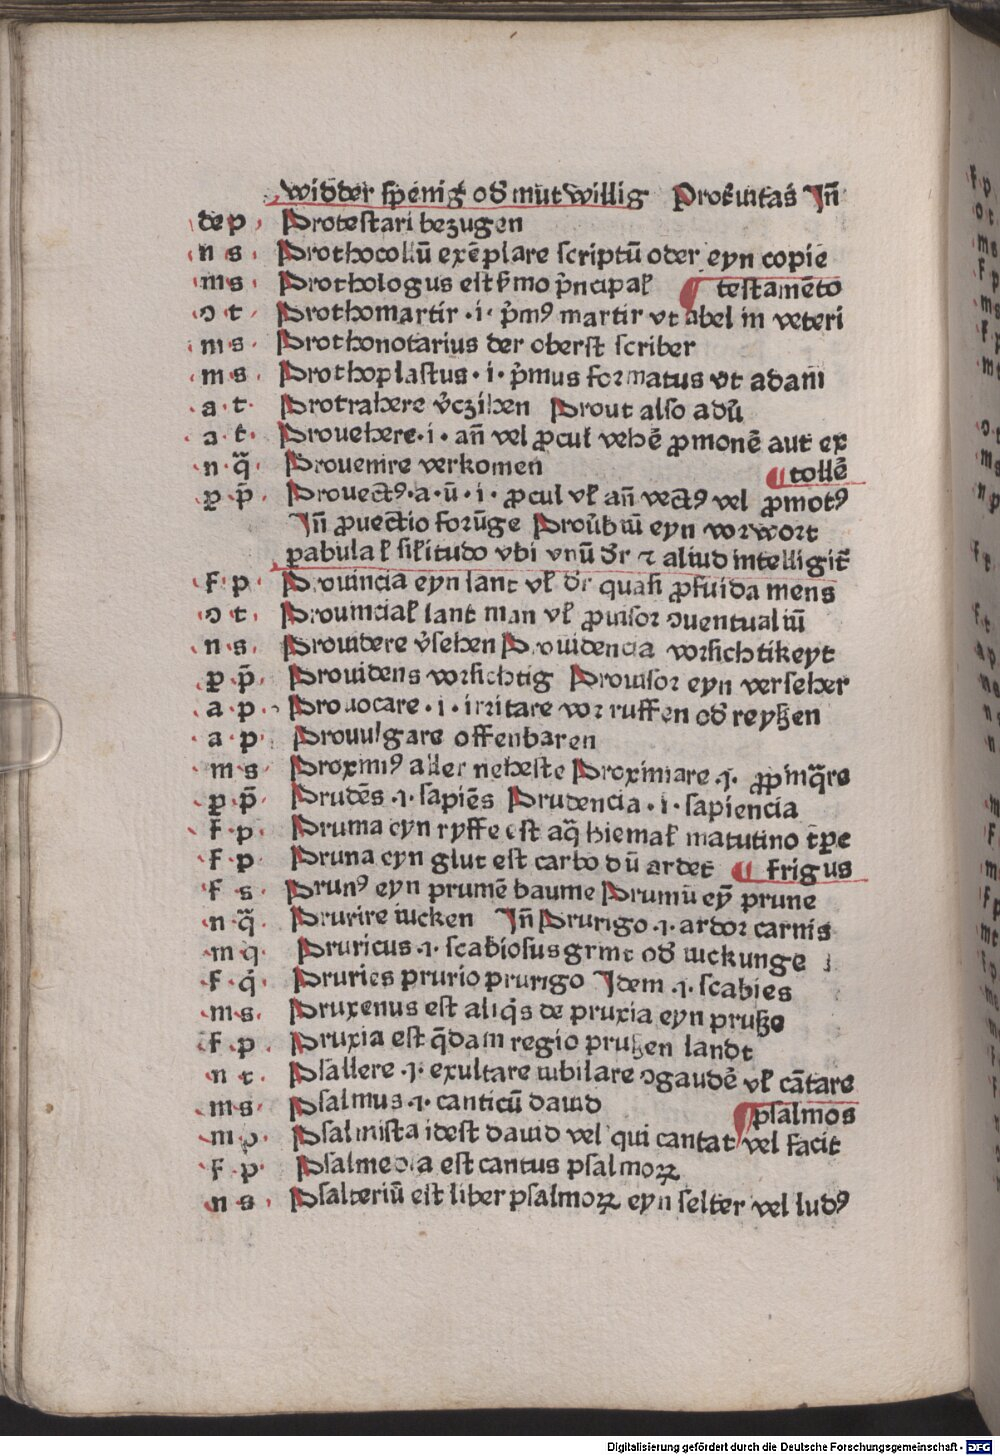 widder spēnig od' mūt willig Prot'uitas Jn̄
de p Protestari bezugen
n s Prothocollū exēplare scriptū oder eyn copie
m s Prothologus est s'mo p'ncipal' ¶ testamēto
ɔ t Prothomartir ·i· p'mꝰ martir vt abel in veteri
m s Prothonotarius der oberst scriber
m s Prothoplastus ·i· p'mus formatus vt adam
a t Protrahere v'czihen Prout also adu'
a t Prouehere·i· an̄ vel ꝓcul vehē ꝓmonē aut ex
n q̄ Prouenire verkomen ¶ tollē
ꝑ p̄ Prouectꝰ·a·ū·i· ꝓcul vl' an̄ vectꝰ vel ꝓmotꝰ
Jn̄ ꝓuectio forūge Prou'biū eyn vorwort
pabula l' sil'itudo vbi vnū d'r ⁊ aliud intelligit'
f p Prouincia eyn lant vl' d'r quasi ꝓfuida mens
ɔ t Prouincial' lant man vl' ꝓuisor ɔuentualiū
n s Prouidere v'sehen Prouidencia vorsichtikeyt
ꝑ p̄ Prouidens vorsichtig Prouisor eyn verseher
a p Prouocare ·i· irritare vor ruffen od' reyßen
a p Prouulgare offenbaren
m s Proxmiꝰ aller neheste Proximare ·i· ꝓpinq̄re
ꝑ p̄ Prudēs ·i· sapiēs Prudencia ·i· sapiencia
f p Pruma eyn ryffe est aq̄ hiemal' matutino tꝑe
f p Pruna eyn glut est carbo dū ardet ¶ frigus
f s Prunꝰ eyn prumē baume Prumū eȳ prune
n q̄ Prurire iucken Jn̄ Prurigo ·i· ardor carnis
m q Pruricus ·i· scabiosus grint od' iuckunge
f q' Pruries prurio prurigo Jdem ·i· scabies
m s Pruxenus est aliq's de pruxia eyn pruße
f p Pruxia est q̄dam regio prußen landt
n t Psallere ·i· exultare iubilare ɔgaudē vl' cātare
m s Psalmus ·i· canticū dauid ¶ psalmos
m p Psalmista idest dauid vel qui cantat vel facit
f p Psalmedia est cantus psalmoꝝ
n s Psalteriū est liber psalmoꝝ eyn selter vel ludꝰ
Digitalisierung gefördert durch die Deutsche Forschungsgemeinschaft - DFG